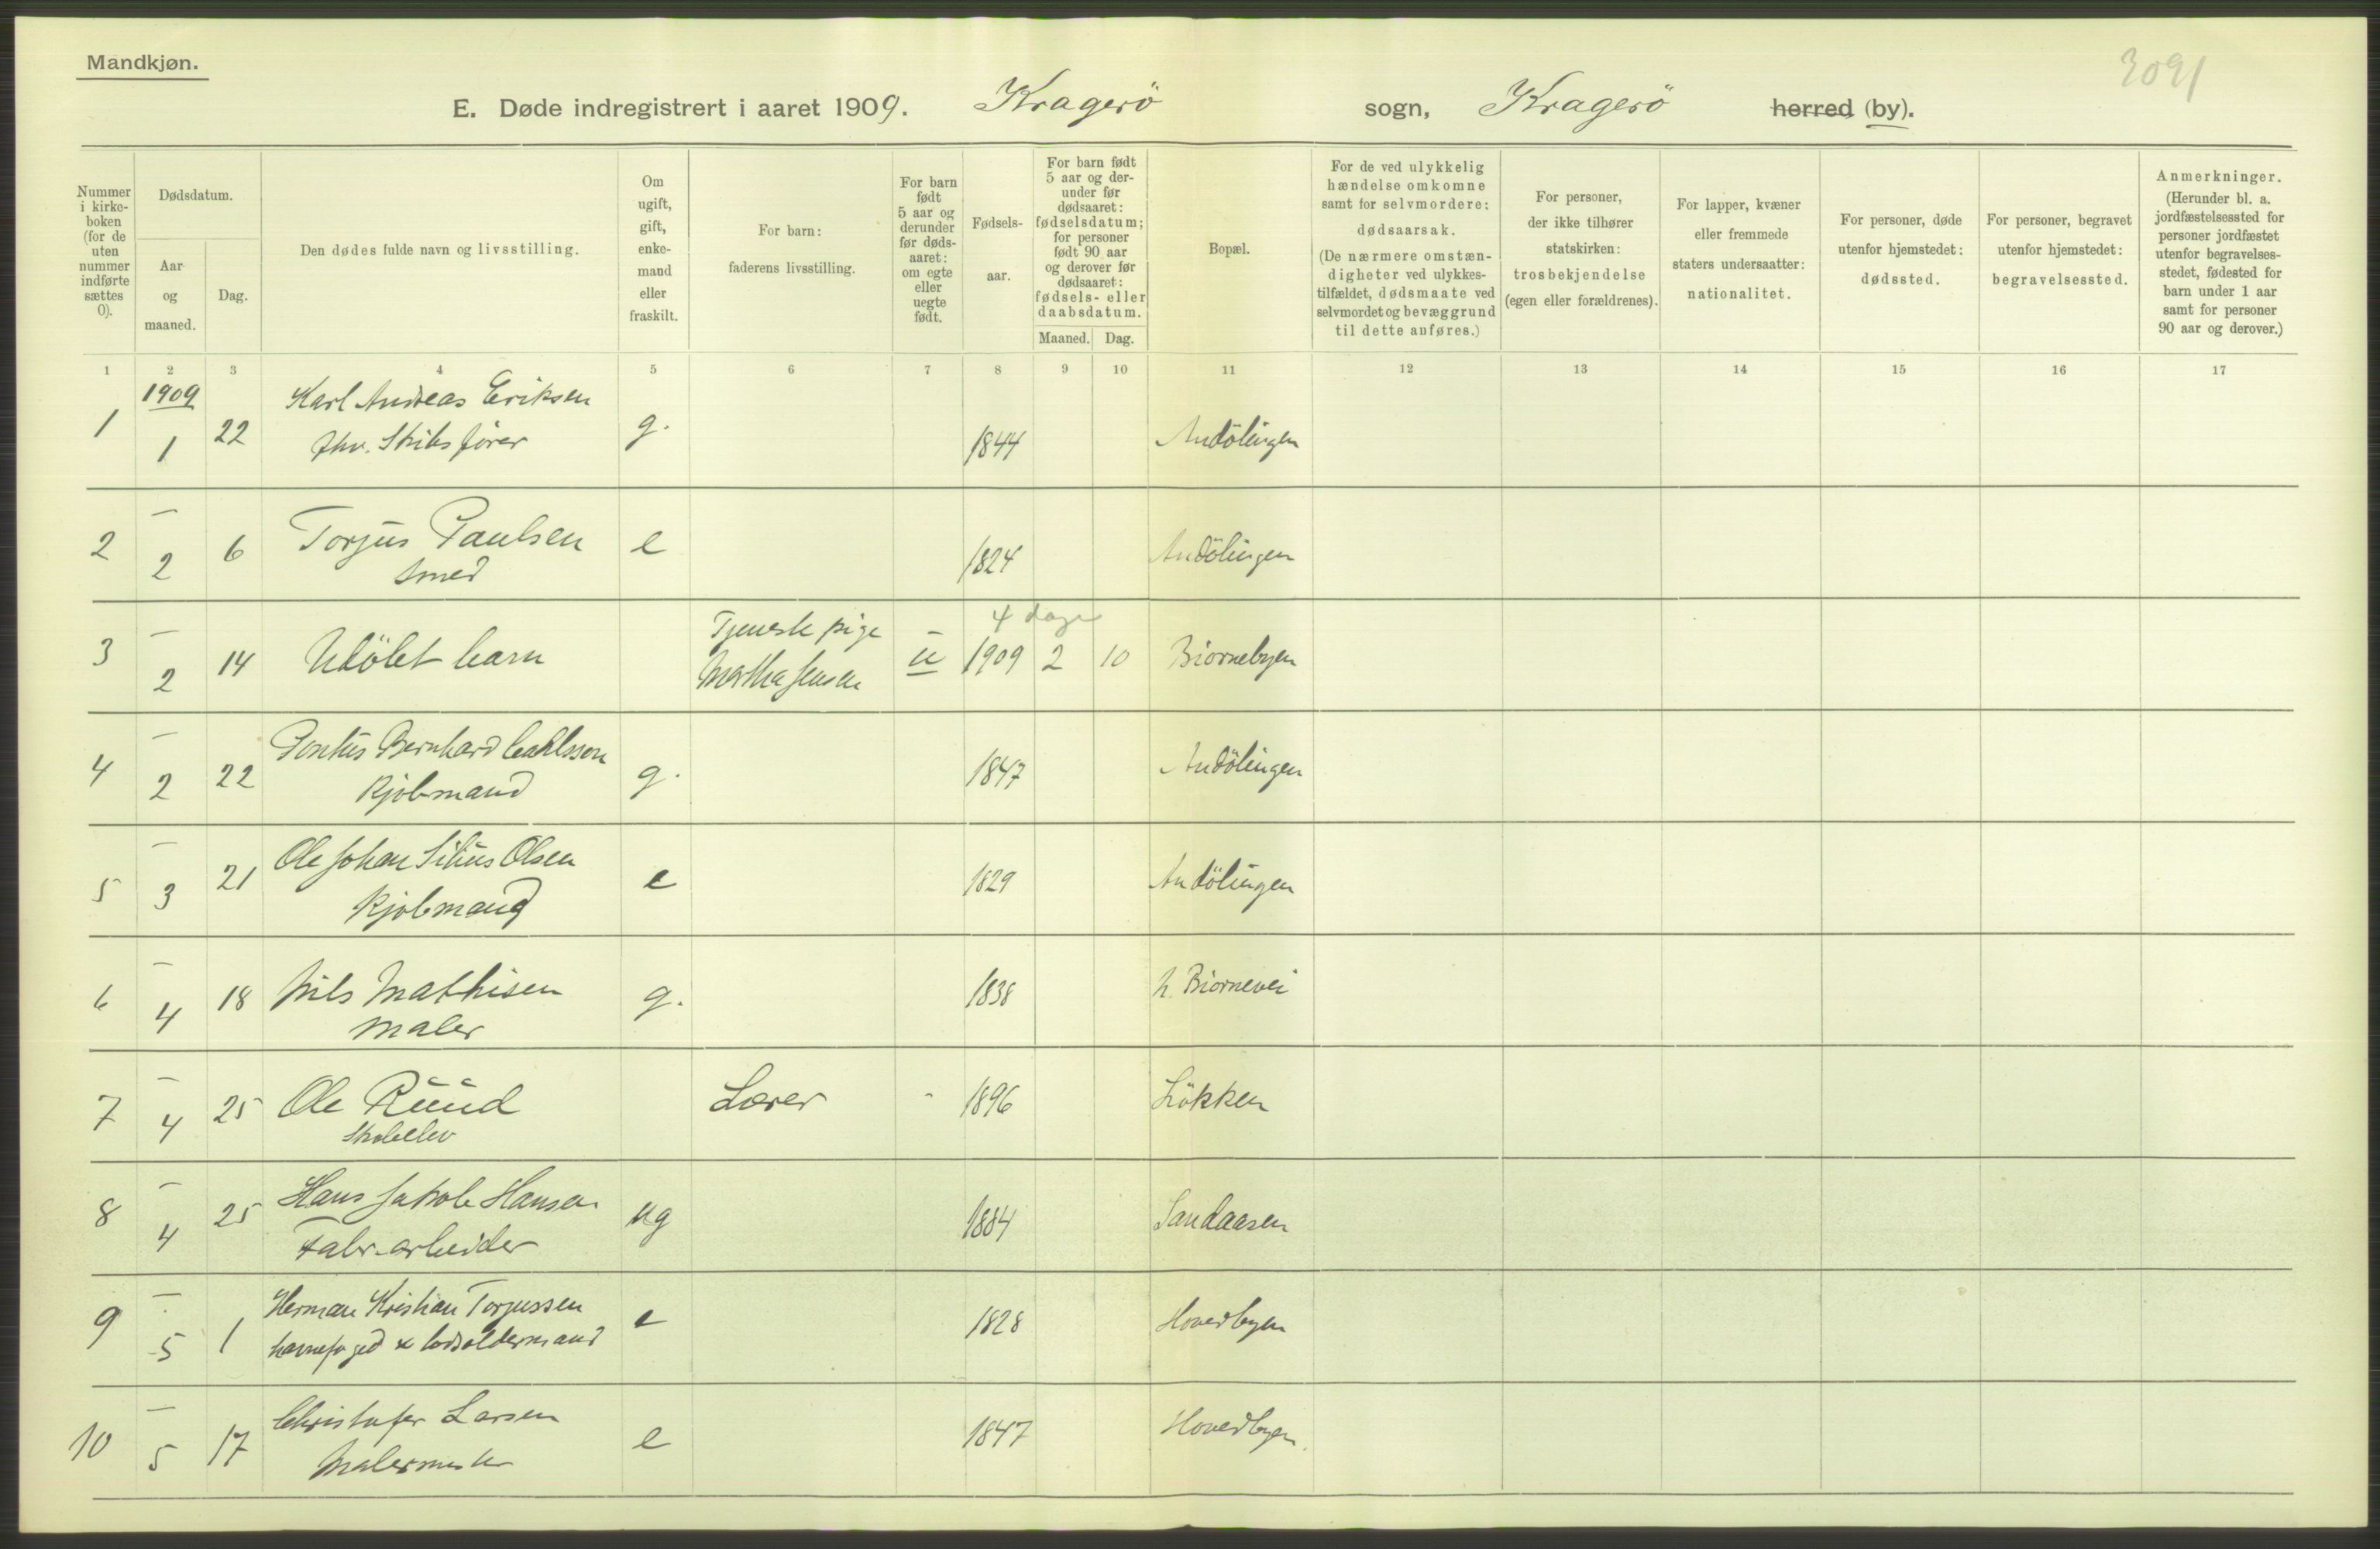 Mandkjøn.
3091
E. Døde indregistrert i aaret 1909. Kragerö sogn, Kragerö herred (by).
Nummer i kirke-boken (for de uten nummer indførte sættes 0).
Dødsdatum.
Aar og maaned.
Dag.
Den dødes fulde navn og livsstilling.
Om ugift, gift, enke-mand eller fraskilt.
For barn: faderens livsstilling.
For barn født 5 aar og derunder før døds-aaret: om egte eller uegte født.
Fødsels-aar.
For barn født 5 aar og der-under før dødsaaret: fødselsdatum; for personer født 90 aar og derover før dødsaaret: fødsels- eller daabsdatum.
Maaned. Dag.
Bopæl.
For de ved ulykkelig hændelse omkomne samt for selvmordere: dødsaarsak. (De nærmere omstæn-digheter ved ulykkes-tilfældet, dødsmaate ved selvmordet og bevæggrund til dette anføres.)
For personer, der ikke tilhører statskirken: trosbekjendelse (egen eller forældrenes).
For lapper, kvæner eller fremmede staters undersaatter: nationalitet.
For personer, døde utenfor hjemstedet: dødssted.
For personer, begravet utenfor hjemstedet: begravelsessted.
Anmerkninger. (Herunder bl. a. jordfæstelsessted for personer jordfæstet utenfor begravelses-stedet, fødested for barn under 1 aar samt for personer 90 aar og derover.)
1 2 3 4 5 6 7 8 9 10 11 12 13 14 15 16 17
1909
1 1 22 Karl Andreas Eriksen g. 1844 Andölingen
fhv. Skibsfører
2 – 2 6 Torjus Paulsen e 1824 Andölingen
Smed
3 – 2 14 Udöbt barn Tjeneste pige ū 1909 2 10 Biornebyen
Martha Jensen
4 dage
4 – 2 22 Pontus Bernhard Carlsson g. 1847 Andölingen
Kjobmand
5 – 3 21 Ole Johan Silius Olsen e 1829 Andölingen
Kjobmand
6 – 4 18 Nils Mathisen g. 1838 N. Biornevei
Maler
7 – 4 25 Ole Ruud Lærer - 1896 Lökken
Skoleelev
8 – 4 25 Hans Jakob Hansen ug 1884 Sandaasen
Fabr-arbeider
9 – 5 1 Herman Kristian Torjussen e 1828 Hovedbyen
havnefoged & lodsoldermand
10 – 5 17 Christofer Larsen e 1847 Hovedbyen
Malermester